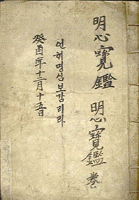 明心寶鑑
明心寶鑑 卷
언해명심보감리라
癸酉年十二月十五日